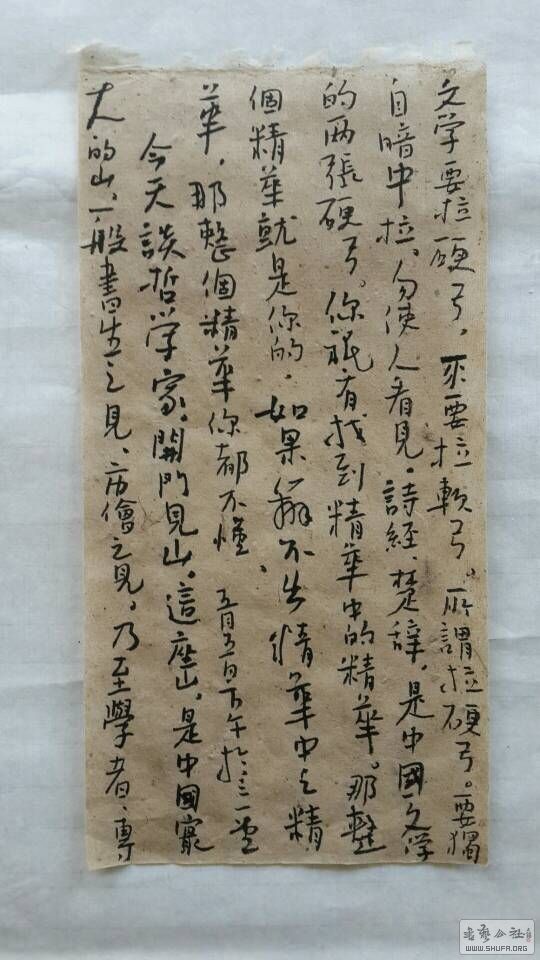 文学要拉硬弓，不要拉軟弓。所謂拉硬弓。要獨
自暗中拉、勿使人看見。詩經、楚辭，是中國文学
的两張硬弓。你祗有找到精華中的精華。那整
個精華就是你的，如果辧不出精華中之精
華，那整個精華你都不懂、 五月五日下午於三一堂
今天談哲学家，開門見山，這座山，是中国最
大的山、一般書生之見、市儈之見，乃至學者、專
書艺公社
WWW.SHUFA.ORG